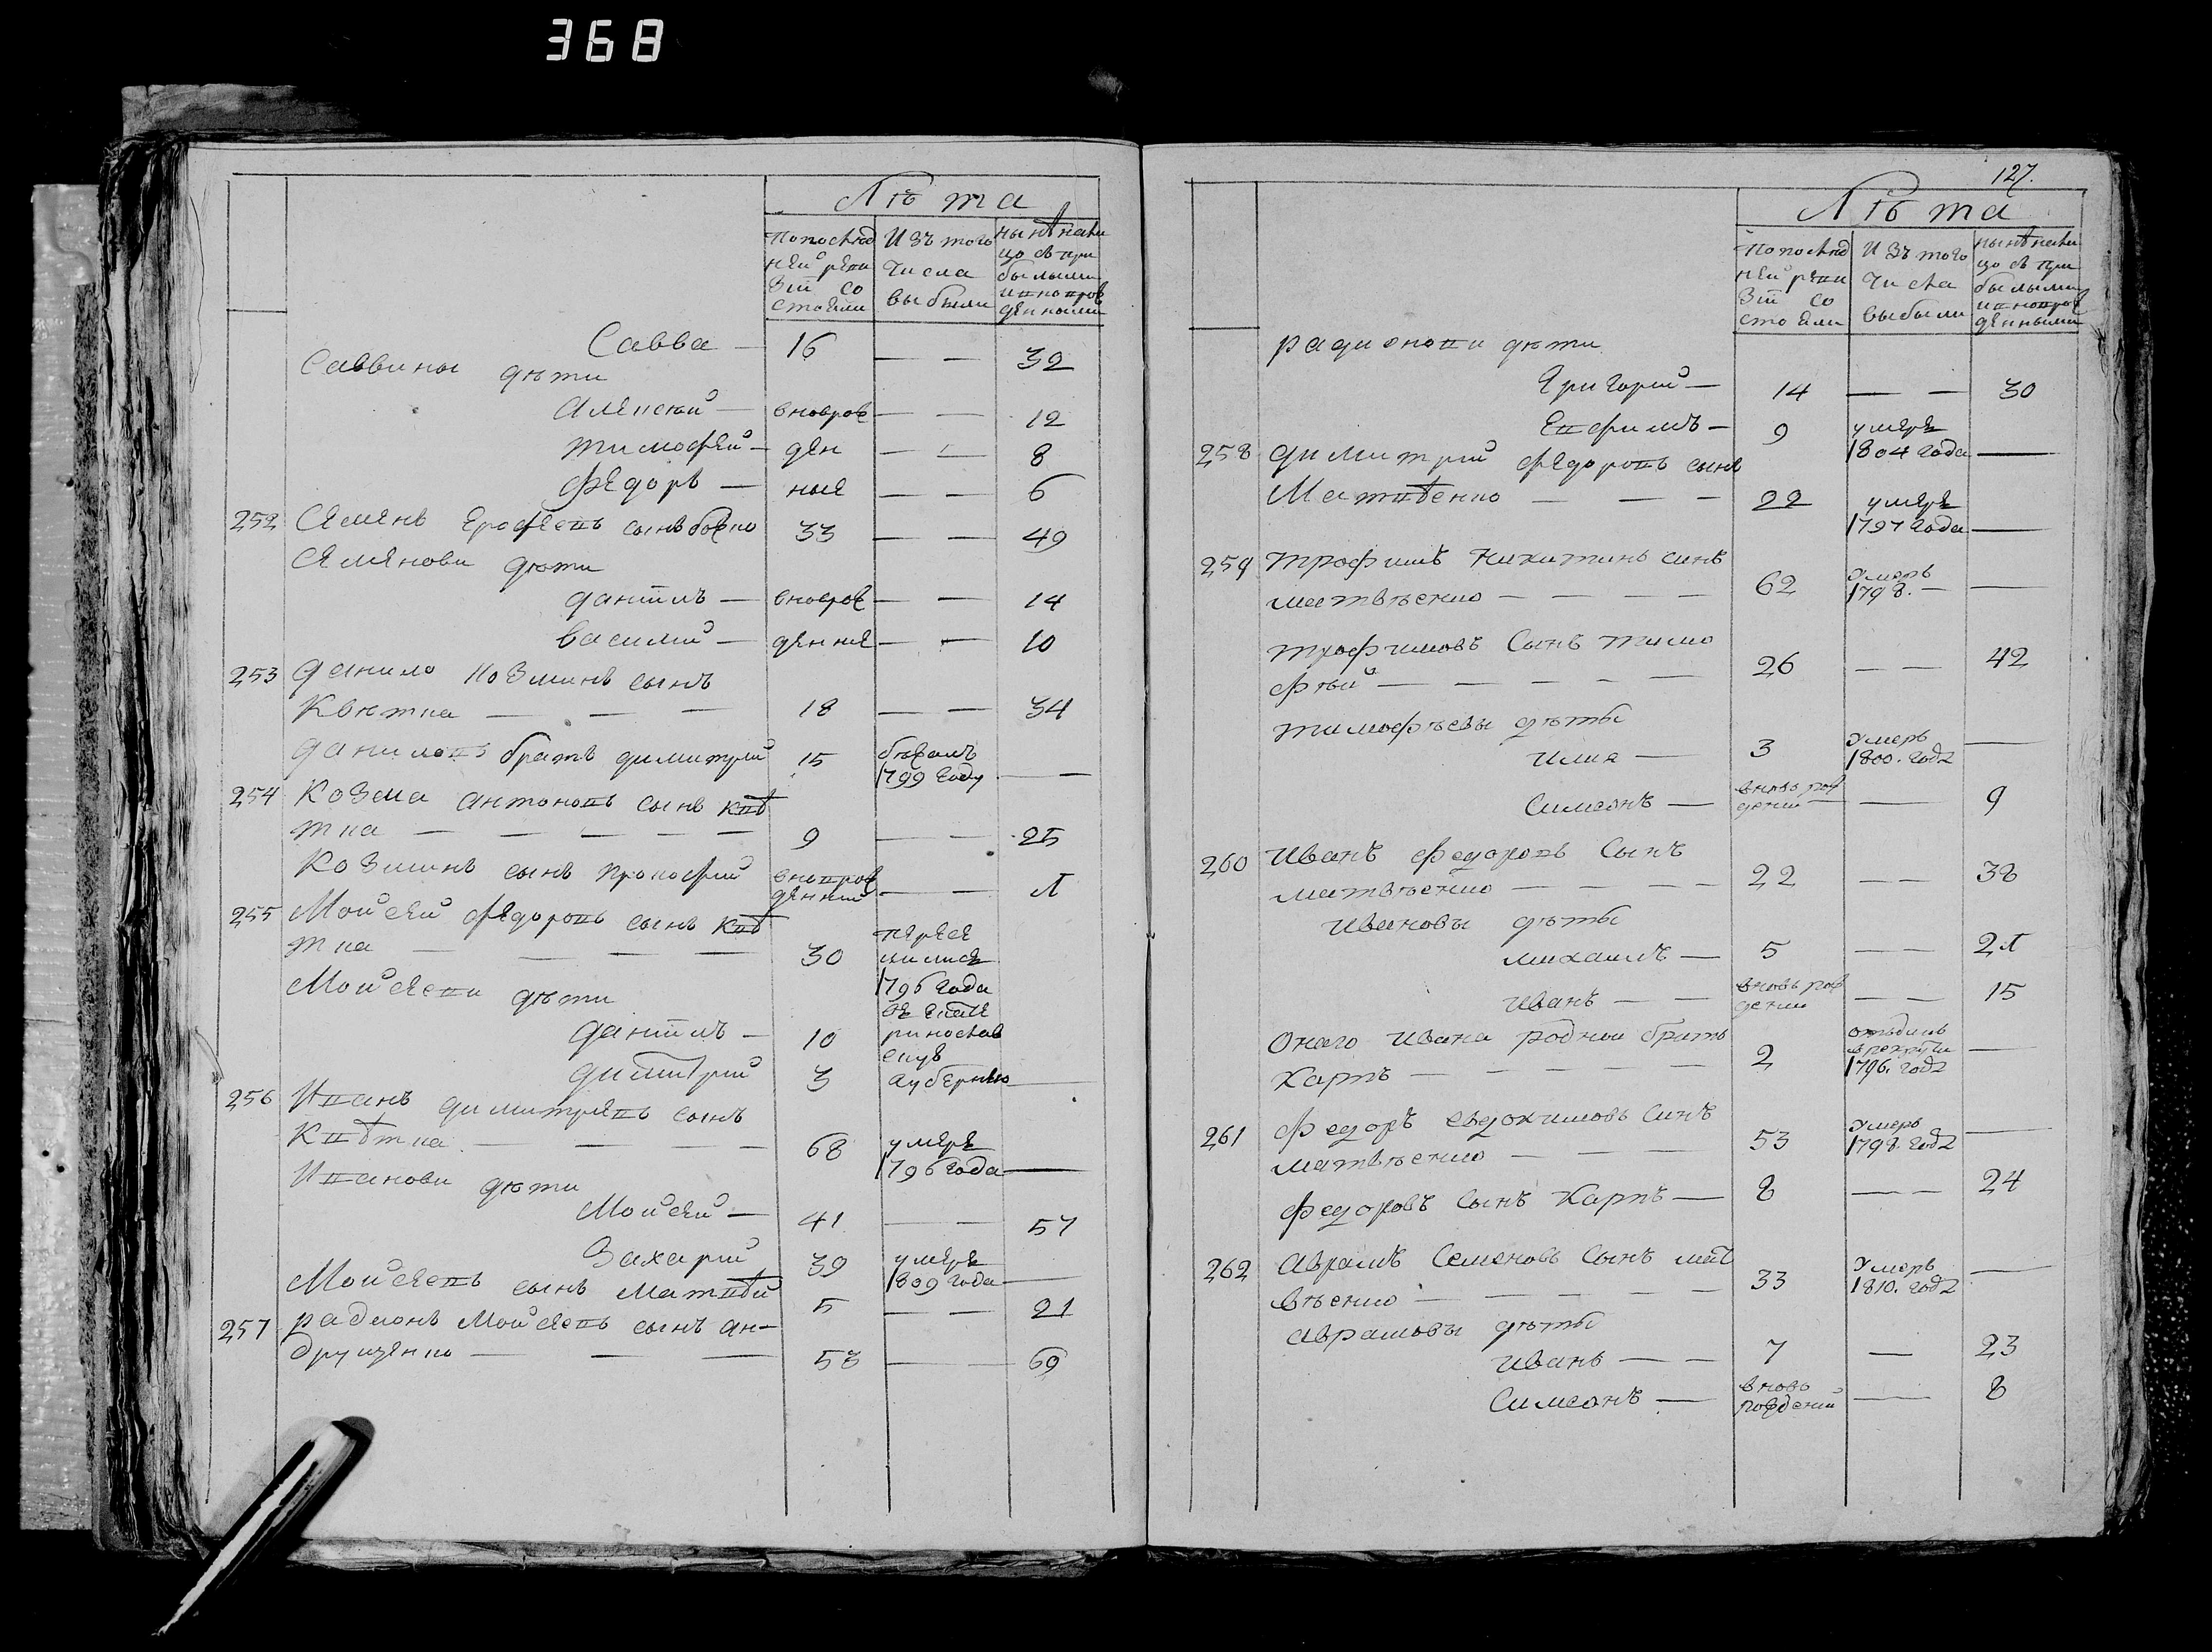 368
Лѣта
Попослѣд
ней реви
зіи со
стояли
Изъ того
числа
выбыли
нынѣ нали
цо съ при
былыми
и новорож
денными
Савва — 16 — — 32
Саввины дѣти
Алексѣй — вновь рож — — 12
Тимофей — ден — — 8
Федоръ — ные — — 6
252 Семенъ Ерофеевъ сынъ 33 — — 49
Семянови дѣти
Даніилъ — вновь рож — — 14
Василий — денние — — 10
253 Данило Козминъ сынъ
Квѣтка — — — 18 — — 34
Даниловъ братъ Димитрий 15 бѣжалъ
1799 году —
254 Козма Антоновъ сынъ Квѣ
тка — — — — — 9 — — 25
Козминъ сынъ Прокофий вновь рож
денний — — 7
255 Мойсей Федоровъ сынъ Квѣ
тка — — — — 30 пересе
лилися
1796 года
Мойсееви дѣти въ Екате
Даніилъ — 10 ринослав
скую
Димитрий 3 губернию —
256 Иванъ Димитриевъ сынъ
Квѣтка — — — 68 умеръ
1796 года —
Иванови дѣти
Мойсей — 41 — — 57
Захарий 39 умеръ
1809 года —
Мойсеевъ сынъ Матвѣй 5 — — 21
257 Радионъ Мойсеевъ сынъ Ан-
друщенко — — — 53 — — 69
127.
Лѣта
Попослѣд
ней реви
зіи со
стояли
Изъ того
числа
выбыли
нынѣ нали
цо съ при
былыми
и новорож
денными
Радионови дѣти
Григорий — 14 — — 30
Евфимъ — 9 умеръ
1804 года —
258 Димитрий Федоровъ сынъ
Матвѣенко — — — 22 умеръ
1797 года —
259 Трофимъ Никитинъ синъ
Матвѣенко — — — — 62 Умеръ
1798. — —
Трофимовъ Сынъ Тимо
фѣй — — — — — 26 — — 42
Тимофѣевы дѣты
Илия — 3 Умеръ
1800. года —
Симеонъ — вновь рож
дений — — 9
260 Иванъ Федоровъ Сынъ
Матвѣенко — — — — 22 — — 38
Ивановы дѣты
Михаилъ — 5 — — 21
Иванъ — — вновь рож
дений — — 15
Онаго Ивана родной братъ
Карпъ — — — — — 2 отъданъ
в рекруты
1796. года —
261 Федоръ Евдокимовъ Синъ
Матвѣенко — — — 53 Умеръ
1798. года —
Федоровъ Сынъ Карпъ — 8 — — 24
262 Аврамъ Семеновъ Сынъ Мат
вѣенко — — — — — 33 Умеръ
1810. года —
Аврамовы дѣты
Иванъ — — 7 — 23
Симеонъ — вновь
рождений — 8